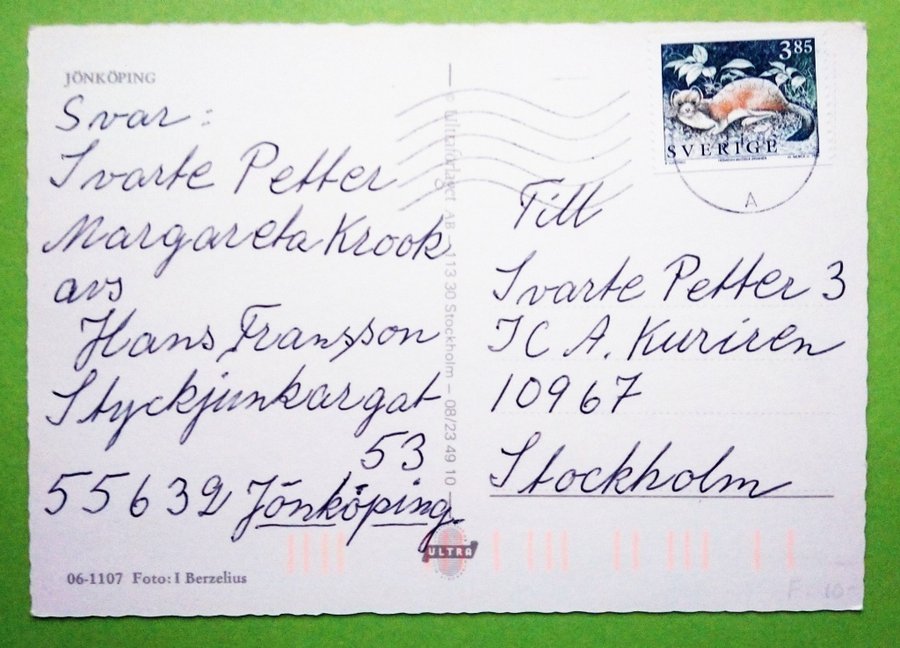 JÖNKÖPING
Svar:
Svarte Petter
Margareta Krook
avs
Hans Fransson
Styckjunkargat
53
55632 Jönköping.
06-1107 Foto: I Berzelius
© Ultraförlaget AB – 113 30 Stockholm – 08/23 49 10
ULTRA
3 85
SVERIGE
A
Till
Svarte Petter 3
ICA. Kuriren
10967
Stockholm